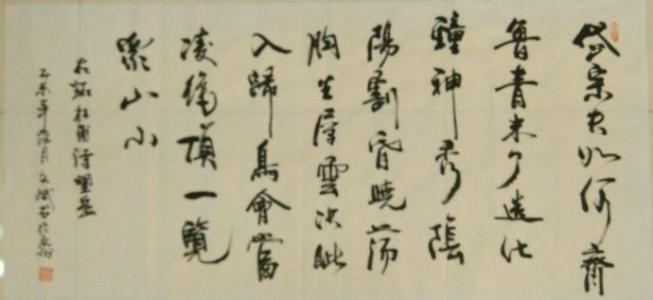 岱宗夫如何齊
魯青未了造化
鍾神秀陰
陽割昏曉蕩
胸生層雲決眦
入歸鳥會當
凌絕頂一覽
眾山小
右錄杜甫詩望岳
乙未年